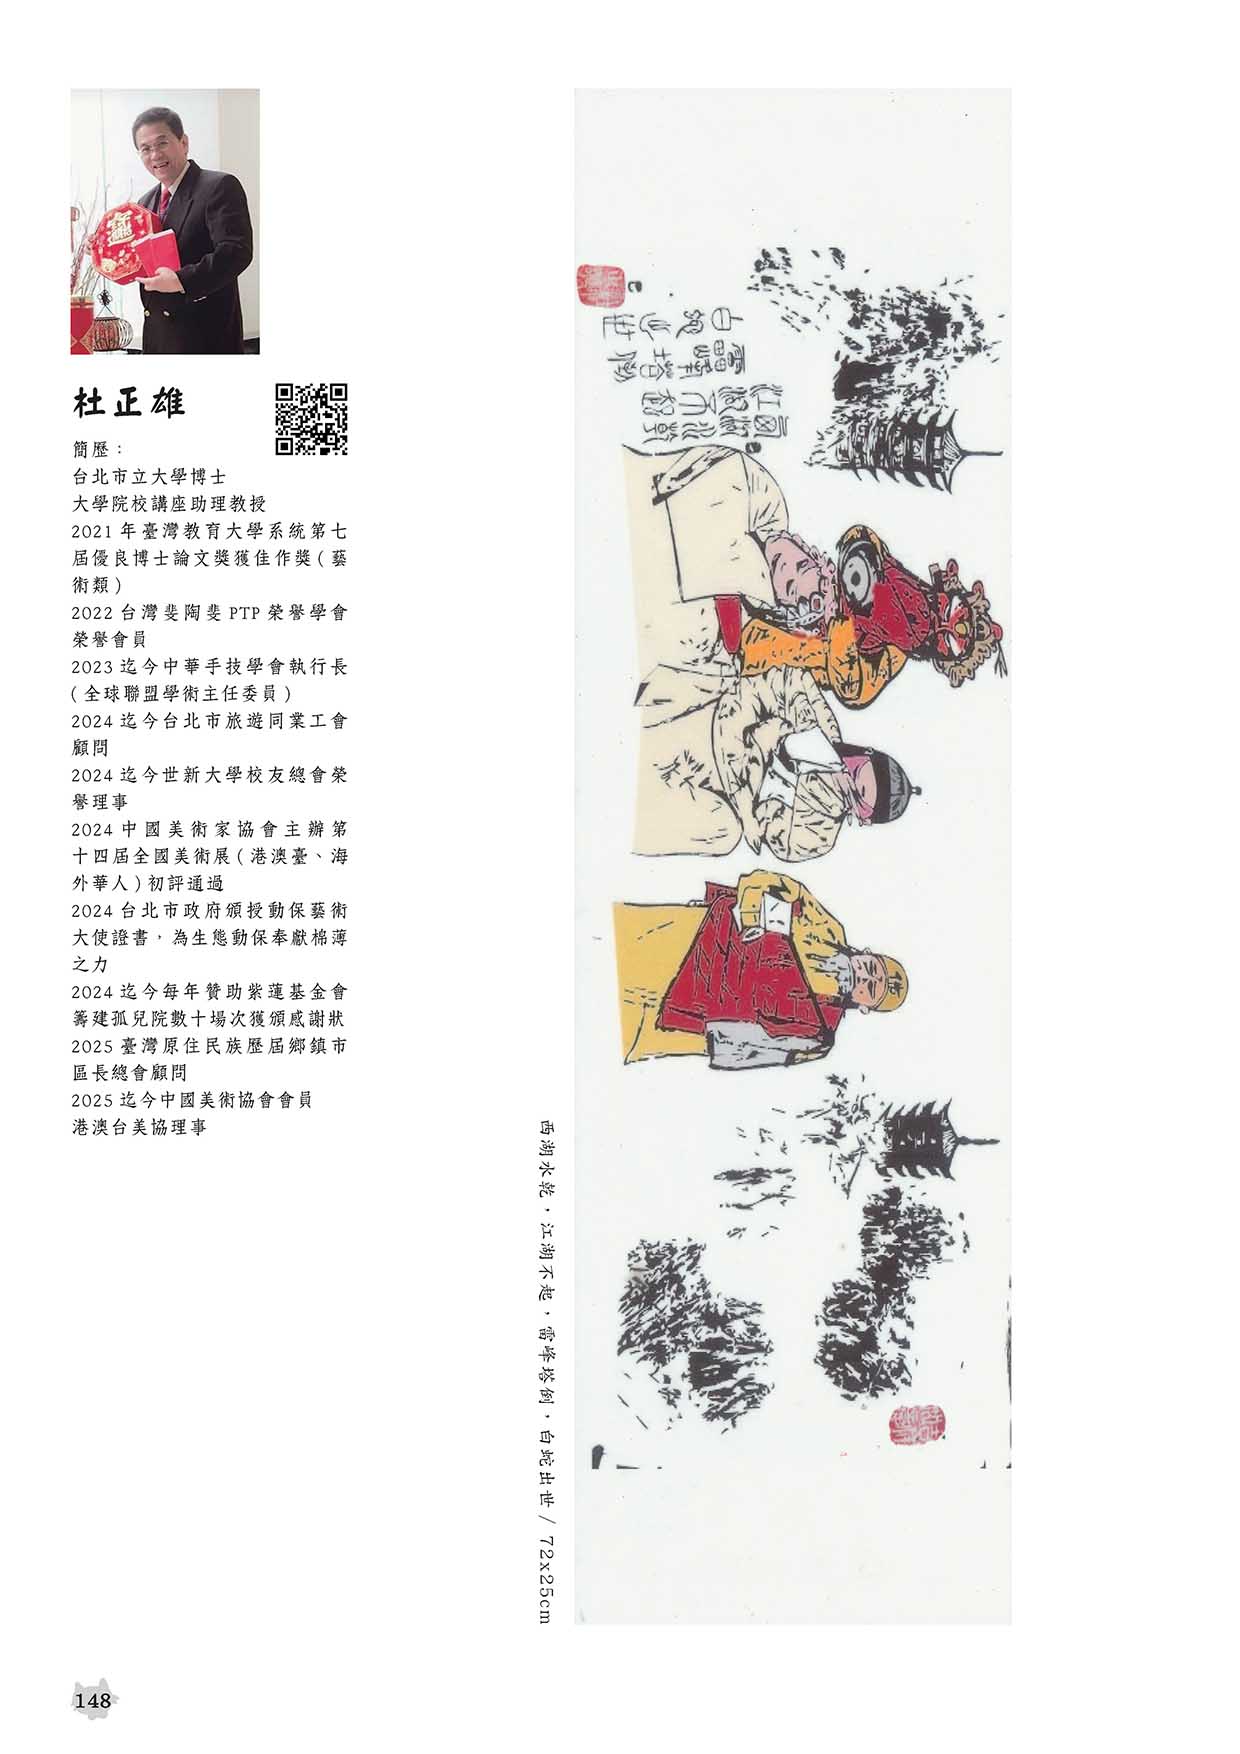 杜正雄
簡歷：
台北市立大學博士
大學院校講座助理教授
2021 年臺灣教育大學系統第七
屆優良博士論文獎獲佳作獎 ( 藝
術類 )
2022 台灣斐陶斐 PTP 榮譽學會
榮譽會員
2023 迄今中華手技學會執行長
( 全球聯盟學術主任委員 )
2024 迄今台北市旅遊同業工會
顧問
2024 迄今世新大學校友總會榮
譽理事
2024 中國美術家協會主辦第
十四屆全國美術展 ( 港澳臺、海
外華人 ) 初評通過
2024 台北市政府頒授動保藝術
大使證書，為生態動保奉獻棉薄
之力
2024 迄今每年贊助紫蓮基金會
籌建孤兒院數十場次獲頒感謝狀
2025 臺灣原住民族歷屆鄉鎮市
區長總會顧問
2025 迄今中國美術協會會員
港澳台美協理事
西湖水乾，江湖不起，雷峰塔倒，白蛇出世 / 72x25cm
佛
148